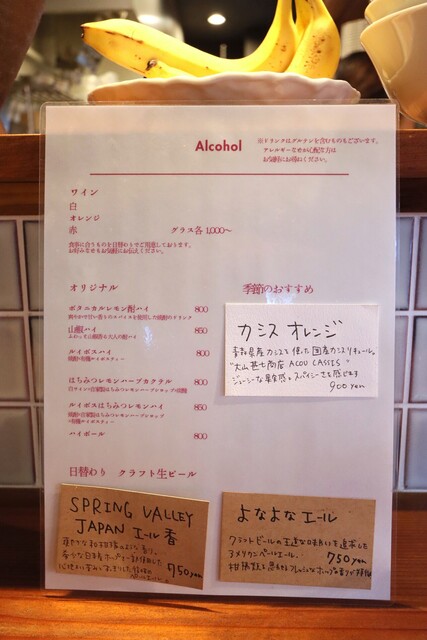 Alcohol
※ドリンクはグルテンを含むものもございます。
アレルギーなど心配な方は
お気軽にお尋ねください。
ワイン
白
オレンジ
赤 グラス各 1,000〜
食事に合うものを日替わりでご用意しております。
お好みなどもお気軽にお伝えください。
オリジナル
ボタニカルレモン酎ハイ 800
山椒ハイ 850
ルイボスハイ 800
はちみつレモンハーブカクテル 800
ルイボスはちみつレモンハイ 850
ハイボール 800
季節のおすすめ
カシス オレンジ
青森県産カシスを使った国産カシスリキュール。
ジューシーな果実感とスパイシーさを感じます
900 yen
日替わり クラフト生ビール
SPRING VALLEY
JAPAN エール 香
750 yen
よなよなエール
クラフトビールの王道な味わいを追求した
アメリカンペールエール。 750 yen